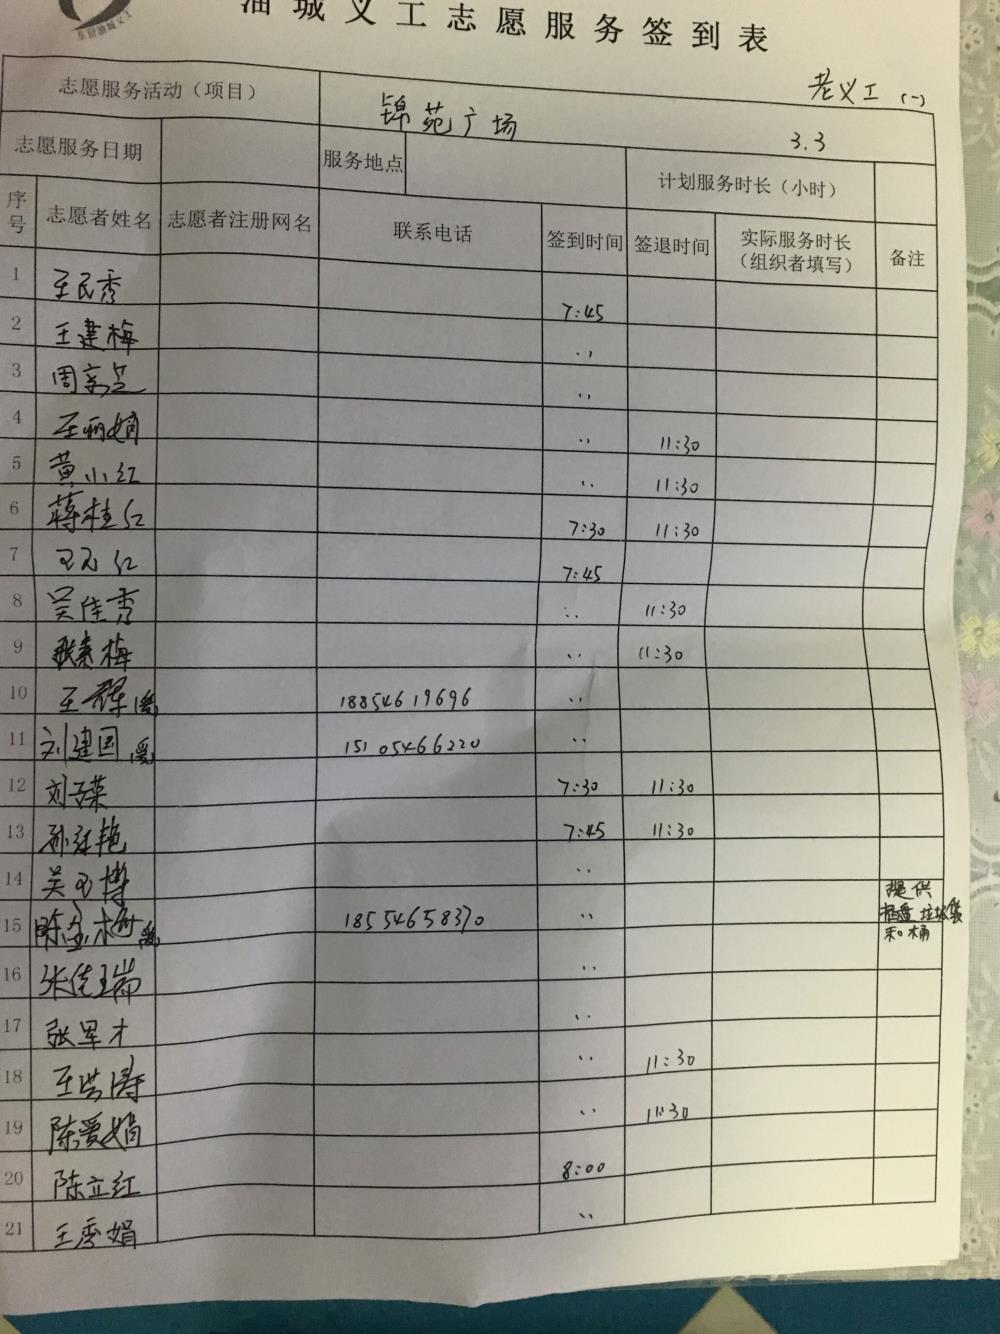 东营油城义工
油城义工志愿服务签到表
老义工（一）
志愿服务活动（项目） 锦苑广场 3.3
志愿服务日期 服务地点 计划服务时长（小时）
序号 志愿者姓名 志愿者注册网名 联系电话 签到时间 签退时间 实际服务时长（组织者填写） 备注
1 王民秀 7:45
2 王建梅 ..
3 周京芝 ..
4 王丽娟 .. 11:30
5 黄小红 .. 11:30
6 蒋桂红 7:30 11:30
7 王玉红 7:45
8 吴佳秀 .. 11:30
9 张素梅 .. 11:30
10 王辉 18854619696 ..
11 刘建国 15105466220 ..
12 刘云荣 7:30 11:30
13 孙红艳 7:45 11:30
14 吴玉博 ..
15 陈金梅 18554658370 .. 提供 垃圾袋 和桶
16 张佳瑞 ..
17 张军才 ..
18 王洪涛 .. 11:30
19 陈爱娟 .. 11:30
20 陈立红 8:00
21 王秀娟 ..